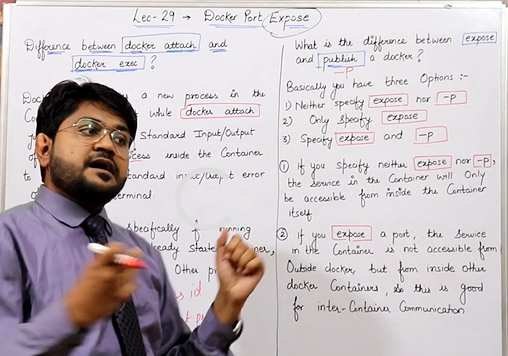 Lec-29 → Docker Port Expose
Difference between docker attach and
docker exec ?
a new process in the
while docker attach
Standard Input/Output
inside the Container
error
terminal
Specifically
running
already Started
Other
id
What is the difference between expose
and publish a docker?
-P
Basically you have three Options :-
1) Neither specify expose nor -p
2) Only Specify expose
3) Specify expose and -p
① If you specify neither expose nor -p,
the service in the Container will Only
be accessible from inside the Container
itself
② If you expose a port, the Service
in the Container is not accessible from
Outside docker, but from inside other
docker Containers, so this is good
for inter-Container Communication.